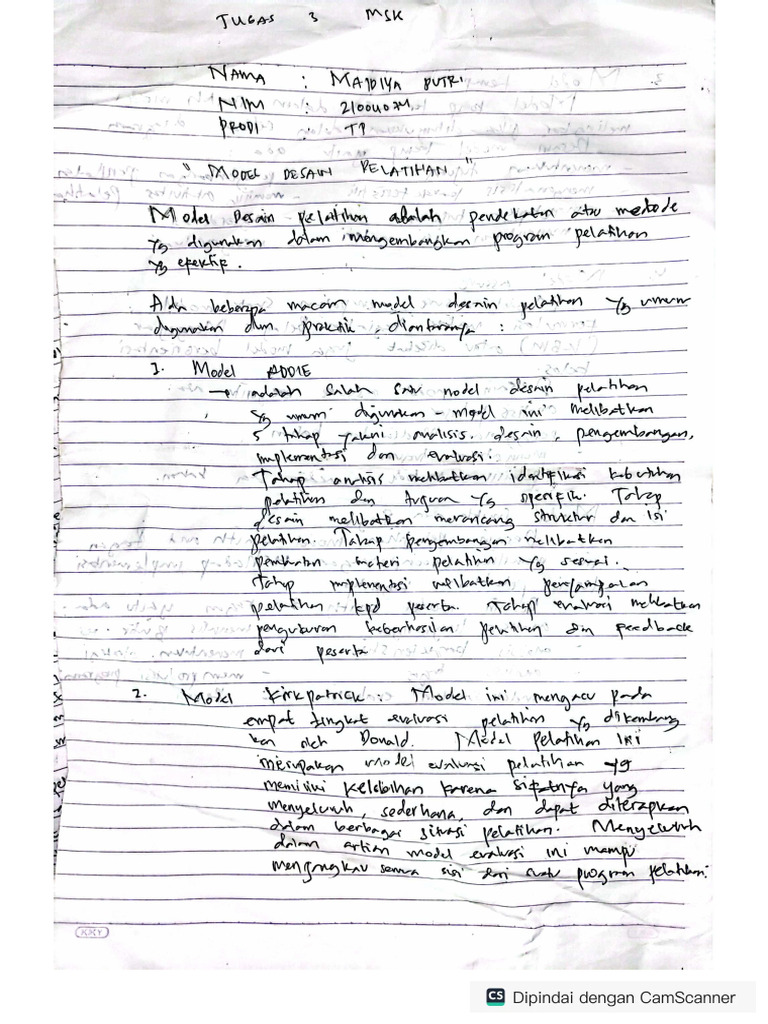 TUGAS 3 MSK
NAMA : MAJDIYA PUTRI
NIM :
PRODI : TP
" MODEL DESAIN PELATIHAN "
Model Desain pelatihan adalah pendekatan atau metode
yg digunakan dalam mengembangkan program pelatihan
yg efektif.
Ada beberapa macam model desain pelatihan yg umum
digunakan dlm praktik, diantaranya :
1. Model ADDIE
→ adalah salah satu model desain pelatihan
yg umum digunakan - model ini melibatkan
5 tahap yakni analisis, desain, pengembangan,
implementasi dan evaluasi.
Tahap analisis melibatkan identifikasi kebutuhan
pelatihan dan tujuan yg spesifik. Tahap
desain melibatkan merancang struktur dan isi
pelatihan. Tahap pengembangan melibatkan
pembuatan materi pelatihan yg sesuai.
Tahap implementasi melibatkan penyampaian
pelatihan kpd peserta. Tahap evaluasi melibatkan
pengukuran keberhasilan pelatihan dan feedback
dari peserta
2. Model Kirkpatrick : Model ini mengacu pada
empat tingkat evaluasi pelatihan yg dikembang
kan oleh Donald. Model Pelatihan ini
merupakan model evaluasi pelatihan yg
memiliki kelebihan karena sifatnya yang
menyeluruh, sederhana, dan dapat diterapkan
dalam berbagai situasi pelatihan. Menyeluruh
dalam artian model evaluasi ini mampu
menjangkau semua sisi dari suatu program pelatihan.
KKY
CS Dipindai dengan CamScanner